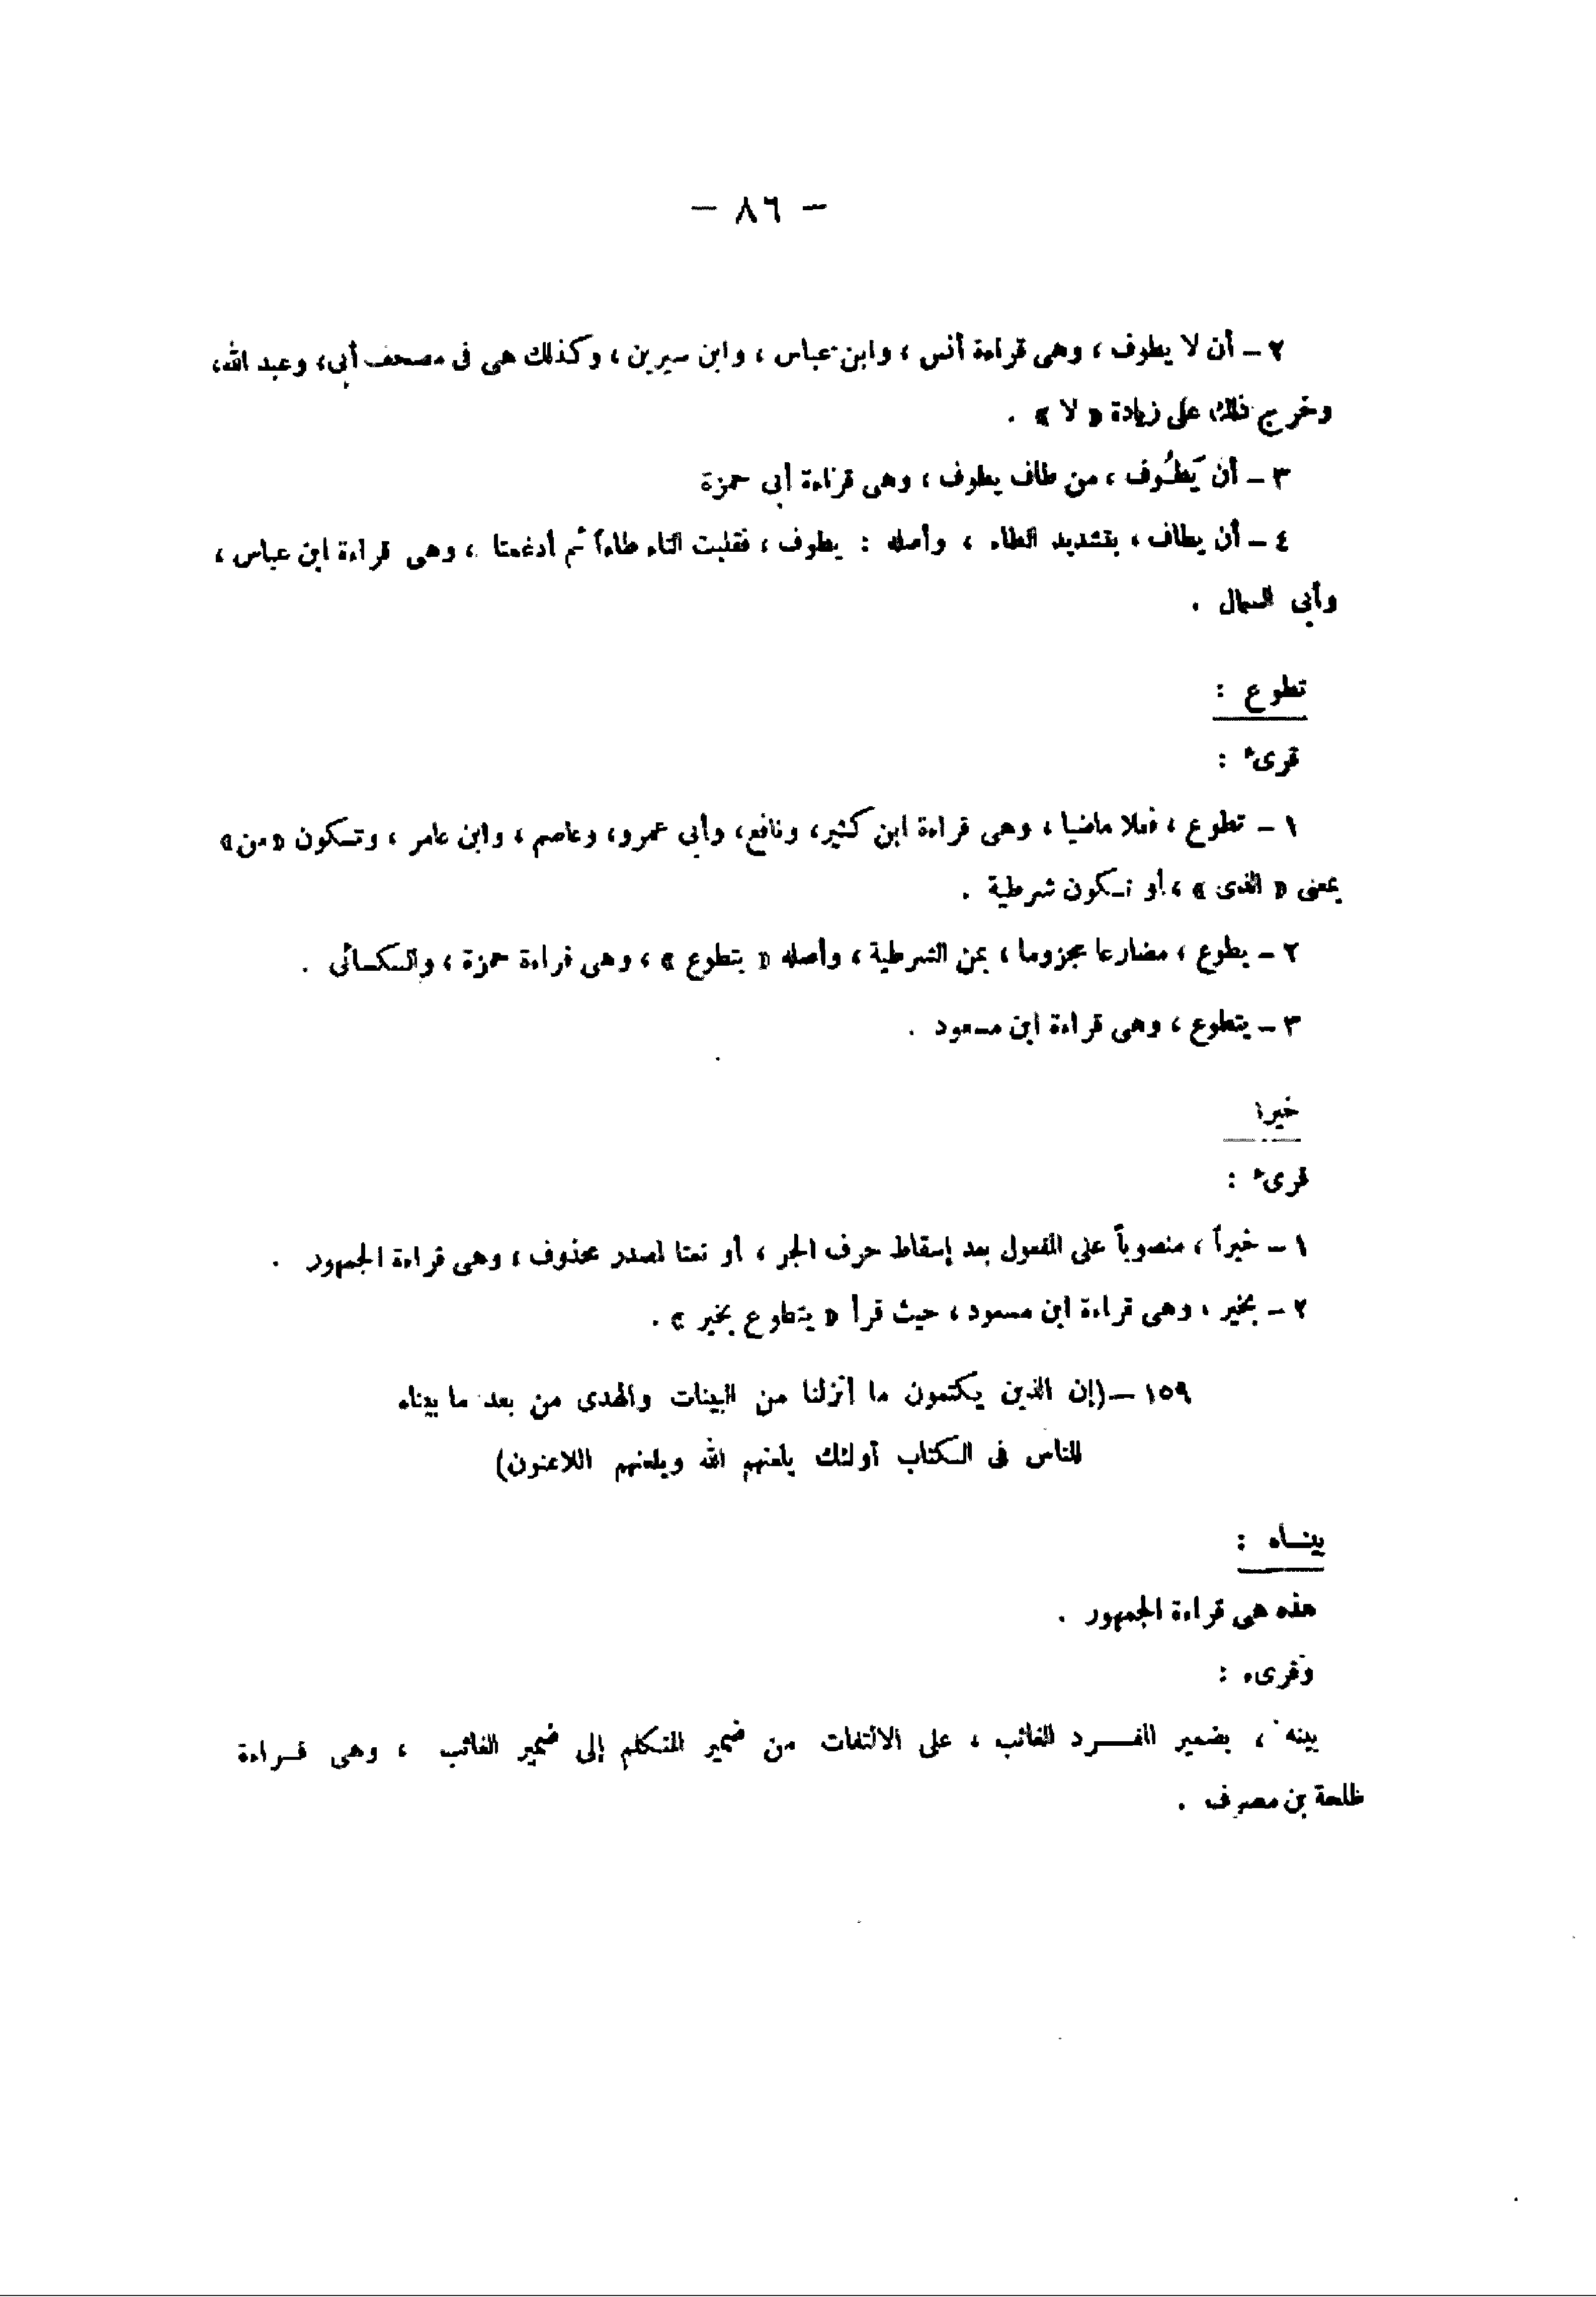 — ٨٦ —
٢ – أن لا يطوف ، وهى قراءة أنس ، وابن عباس ، وابن سيرين ، وكذلك هى فى مصحف أبى، وعبد الله،
وخرج ذلك على زيادة « لا » .
٣ – أن يَطُوف ، من طاف يطوف ، وهى قراءة أبى حمزة
٤ – أن يطاف ، بتشديد الطاء ، وأصله : يطوف ، فقلبت التاء طاءاً ثم أدغمتا ، وهى قراءة ابن عباس ،
وأبى السمال .
تطوع :
قرىء :
١ – تطوع ، فعلا ماضيا ، وهى قراءة ابن كثير، ونافع، وأبى عمرو، وعاصم ، وابن عامر ، وتكون «من»
بمعنى « الذى » ، أو تكون شرطية .
٢ – يطوع ، مضارعا مجزوما ، بمن الشرطية ، وأصله « يتطوع » ، وهى قراءة حمزة ، والكسائى .
٣ – يتطوع ، وهى قراءة ابن مسعود .
خيرا
قرىء :
١ – خيراً ، منصوباً على المفعول بعد إسقاط حرف الجر ، أو نعتا لمصدر محذوف ، وهى قراءة الجمهور .
٢ – بخير ، وهى قراءة ابن مسعود ، حيث قرأ « يتطوع بخير » .
١٥٩ – (إن الذين يكتمون ما أنزلنا من البينات والهدى من بعد ما بيناه
للناس فى الكتاب أولئك يلعنهم الله ويلعنهم اللاعنون)
بيناه :
هذه هى قراءة الجمهور .
وقرىء :
بينه ، بضمير المفرد الغائب ، على الالتفات من ضمير المتكلم إلى ضمير الغائب ، وهى قراءة
طلحة بن مصرف .